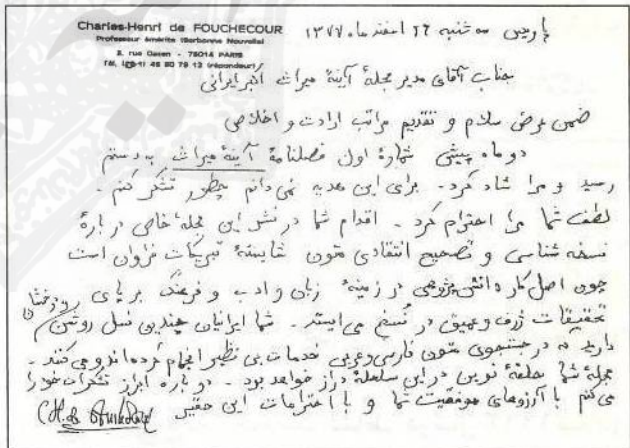 Charles-Henri de FOUCHECOUR
Professeur émérite (Sorbonne Nouvelle)
2, rue Gasan - 75014 PARIS
Tél. 45 80 79 12 (répondeur)
پاریس سه شنبه ۲۶ اسفند ماه ۱۳۷۷
جناب آقای مدیر مجلهٔ آینهٔ میراث اکبر ایرانی
ضمن عرض سلام و تقدیم مراتب ارادت و اخلاص
دو ماه پیش شمارهٔ اول فصلنامهٔ آینهٔ میراث به دستم
رسید و مرا شاد کرد. برای این هدیه نمی دانم چطور تشکر کنم.
لطف شما مرا احترام کرد. اقدام شما در نشر این مجلهٔ خاص در بارهٔ
نسخه شناسی و تصحیح انتقادی متون شایستهٔ تبریکات فراوان است
چون اصل کار دانش پژوهی در زمینهٔ زبان و ادب و فرهنگ بر پای
تحقیقات ژرف و عمیق در نسخ می ایستد. شما ایرانیان چندین نسل روشن
دارید که در جستجوی متون فارسی و عربی خدمات بی نظیر انجام کرده اند و می کنند.
مجلهٔ شما حلقهٔ نوین در این سلسلهٔ دراز خواهد بود. دوباره ابراز تشکرات خود را
می کنم با آرزوهای موفقیت شما و با احترامات این حقیر